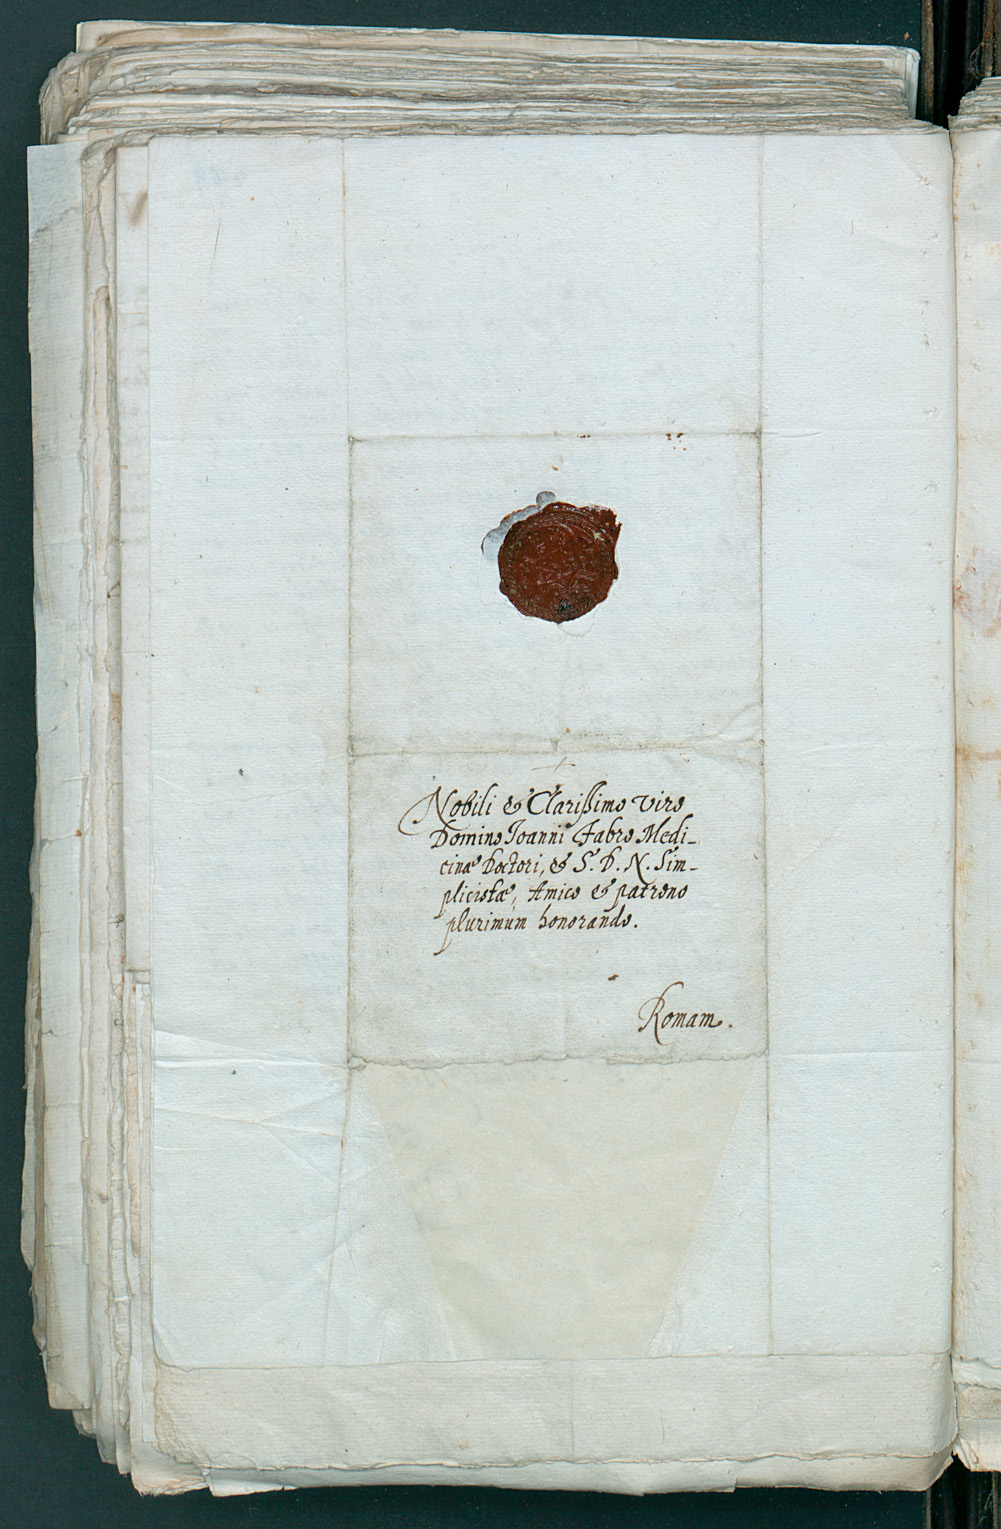 Nobili & Clarissimo Viro
Domino Ioanni Fabro Medi-
cinæ Doctori, & S. D. N. Sim-
plicistæ, Amico & patrono
plurimùm honorando.
Romam.